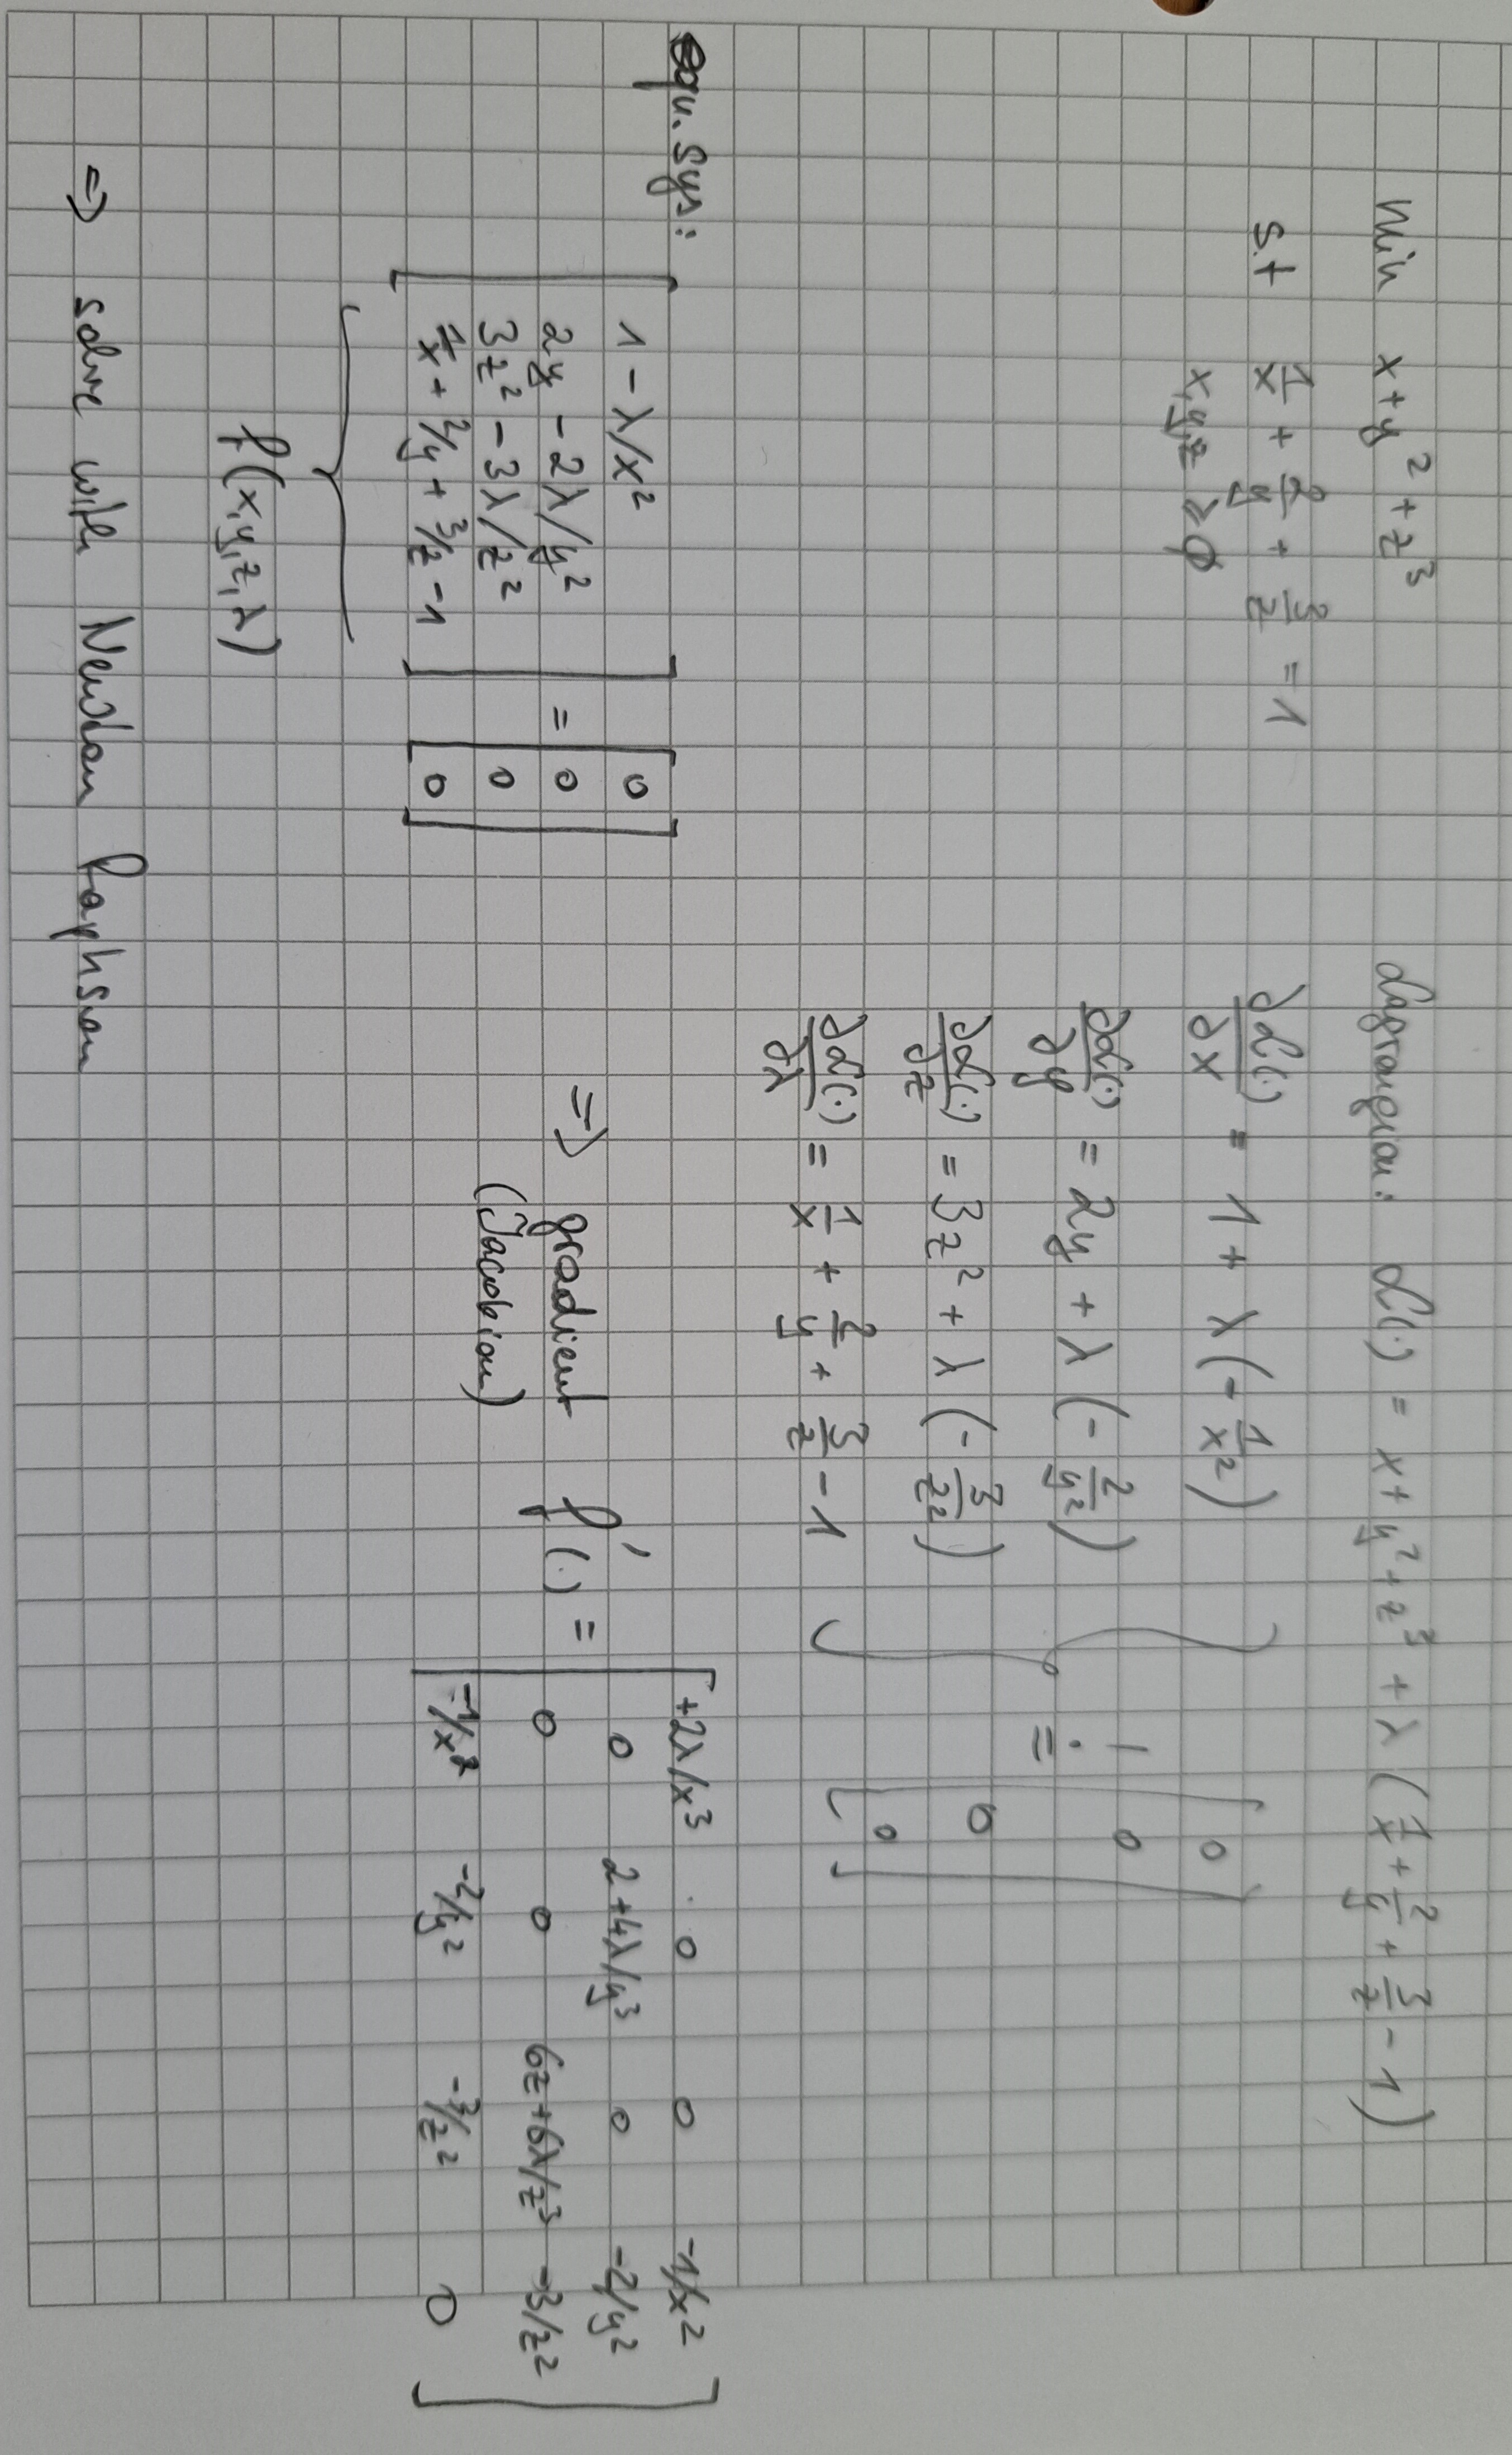 min x+y²+z³
s.t 1/x + 2/y + 3/z = 1
x,y,z ≥ 0
Lagrangian: ℒ(·) = x+y²+z³ + λ (1/x + 2/y + 3/z - 1)
∂ℒ(·)/∂x = 1 + λ (- 1/x²)
∂ℒ(·)/∂y = 2y + λ (- 2/y²)
∂ℒ(·)/∂z = 3z² + λ (- 3/z²)
∂ℒ(·)/∂λ = 1/x + 2/y + 3/z - 1
! =
0
0
0
0
equ. sys:
1 - λ/x²
2y - 2λ/y²
3z² - 3λ/z²
1/x + 2/y + 3/z - 1
=
0
0
0
0
f(x,y,z,λ)
=> gradient f'(·) =
(Jacobian)
+2λ/x³ 0 0 -1/x²
0 2+4λ/y³ 0 -2/y²
0 0 6z+6λ/z³ -3/z²
-1/x² -2/y² -3/z² 0
=> solve with Newton Raphson